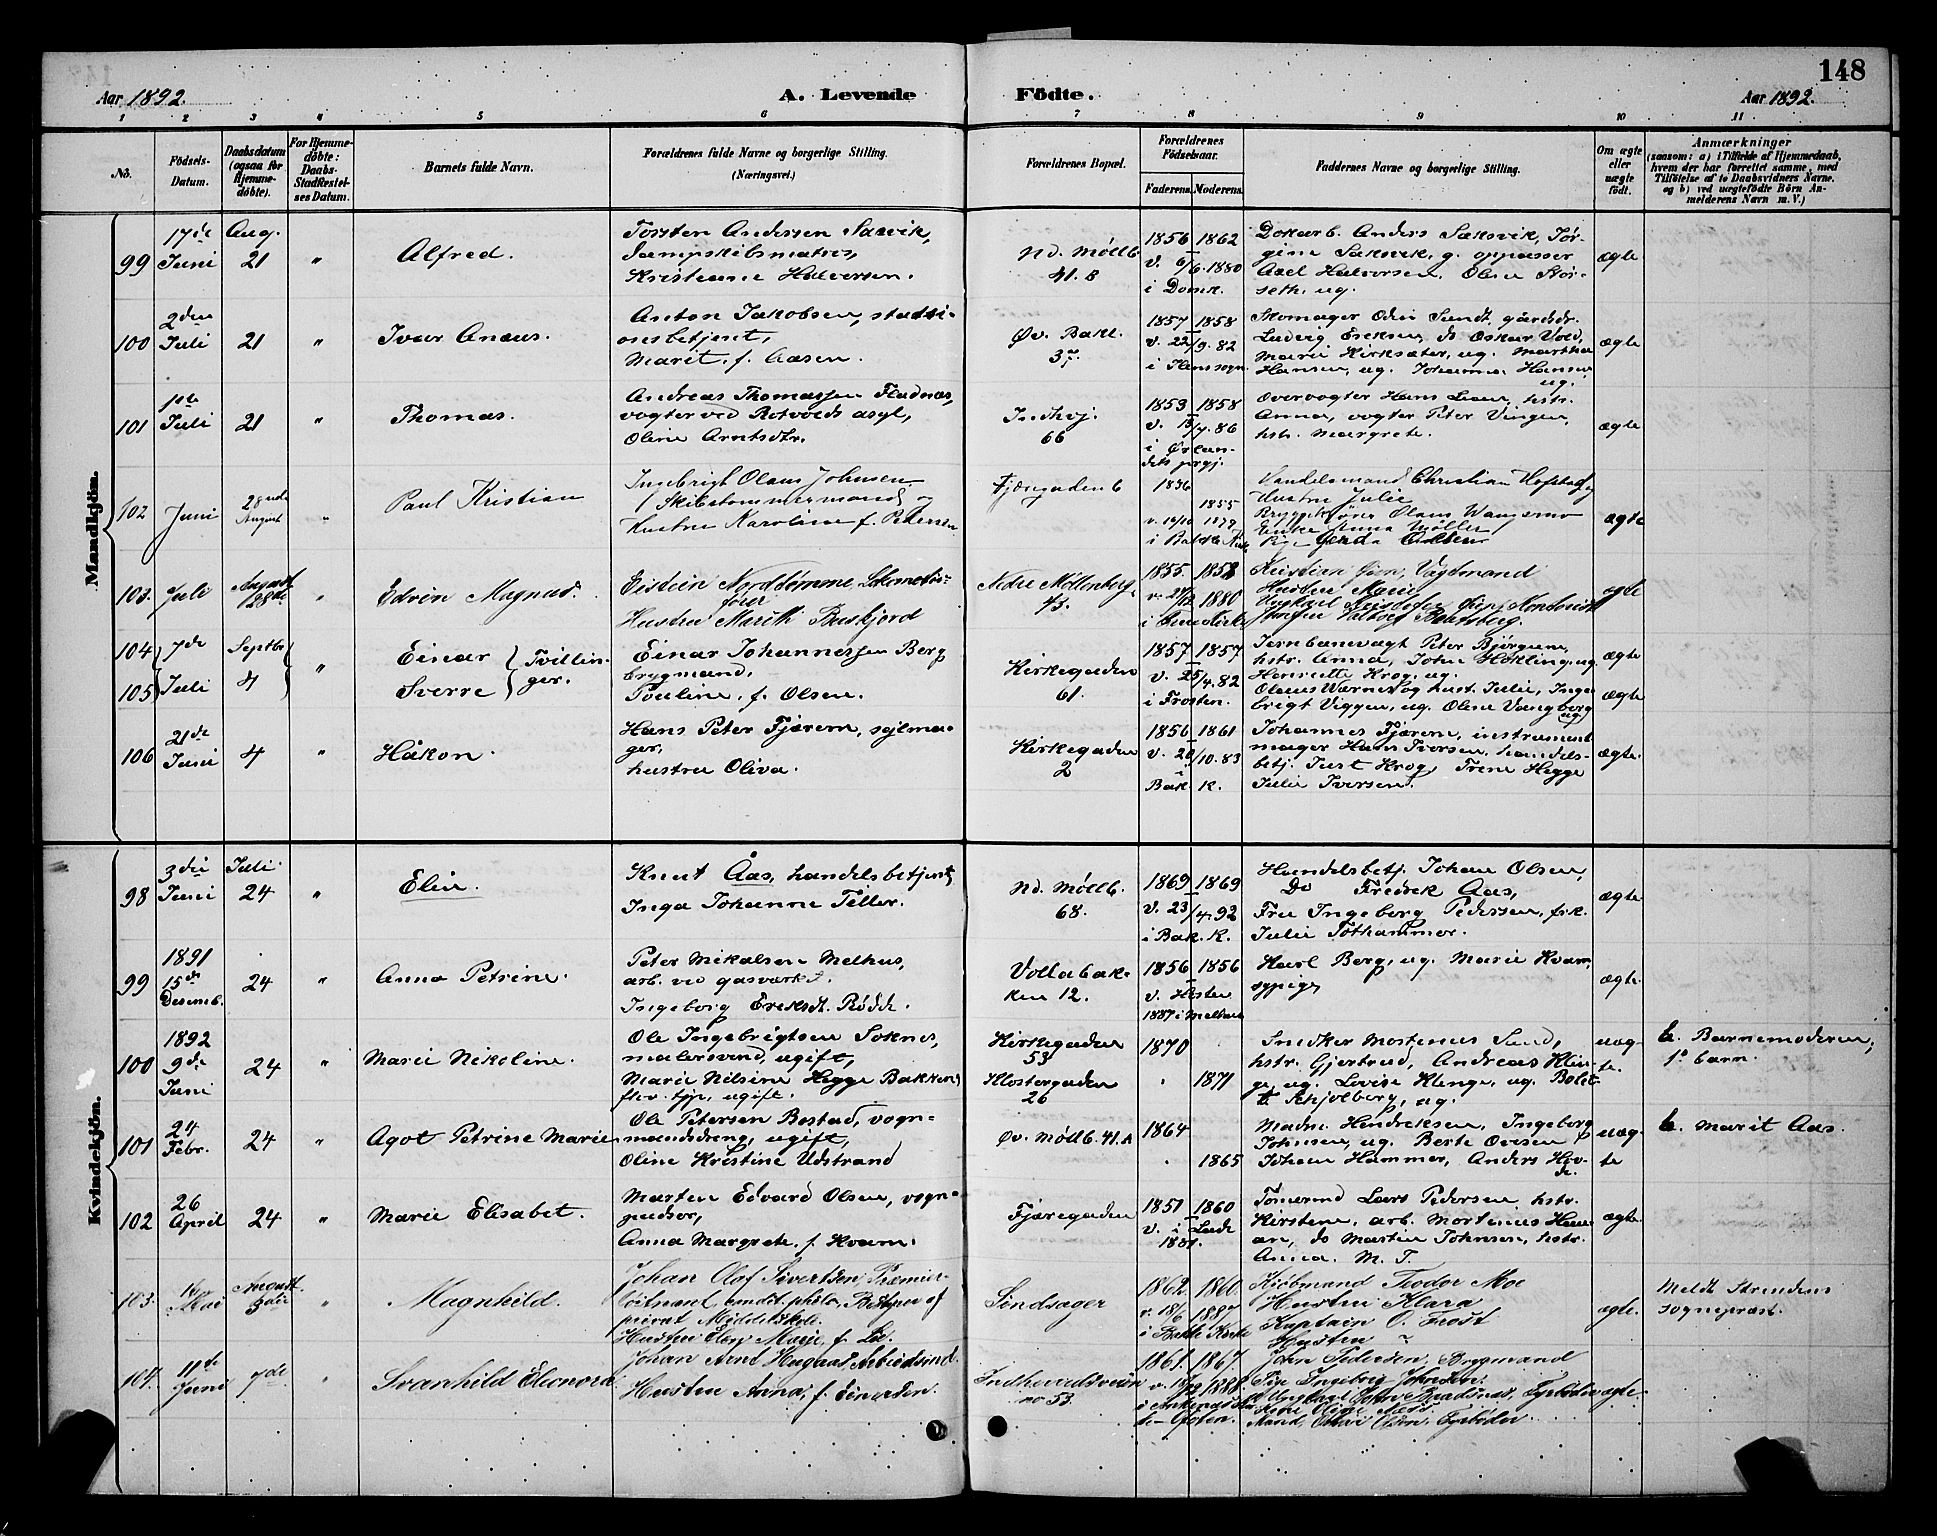 148
Aar 1892.
A. Levende
Födte.
Aar 1892.
1 2 3 4 5 6 7 8 9 10 11
No.
Födsels-
Datum.
Daabsdatum
(ogsaa for
Hjemme-
döbte).
For Hjemme-
döbte:
Daabs-
Stadfæstel-
ses Datum.
Barnets fulde Navn.
Forældrenes fulde Navne og borgerlige Stilling.
(Næringsvei.)
Forældrenes Bopæl.
Forældrenes
Födselsaar.
Faderens. Moderens.
Faddernes Navne og borgerlige Stilling.
Om ægte
eller
uægte
födt.
Anmærkninger
(saasom: a) i Tilfælde af Hjemmedaab,
hvem der har forrettet samme, med
Tilföielse af to Daabsvidners Navne.
og b) ved uægtefödte Börn An-
melderens Navn m. V.)
Mandkjön.
99
17de
Juni
Aug.
21
"
Alfred.
Torsten Andersen Saxvik,
dampskibsmatros,
Kristiane Halvorsen.
Nd. Möllb.
41. B
1856 1862
v. 6/6. 1880
i Domk.
Anders Saksvik, Jör-
gine Saksvik, g. oppasser
Axel Halvorsen, Oline Stör-
seth, ug.
ægte
100
2den
Juli
21
"
Ivar Anæus.
Anton Jakobsen, statsi-
onsbetjent,
Marit, f. Aasen.
Øv. Bakl.
37.
1857 1858
v. 22/9. 82
Skomager Odin Sundt, gårdsdr.
Ludvig Eriksen, do Oskar Vold,
Marie Kirksæter, ug. Martha
Hansen, ug. Johanna Hansen
ug.
ægte
101
1ste
Juli
21
"
Thomas.
Andreas Thomassen Fladnæs,
vogter ved Rotvolds asyl,
Oline Arntsdtr.
Indhvj.
66
1853 1858
v. 13/7. 86
i Ørlan-
dets prgj.
Overvogter Hans Lian, hstr.
Anna, vogter Peter Vingen,
hstr. Margrete.
ægte
102
Juni
28nde
August
"
Paul Kristian
Ingebrigt Olaus Johnsen
Skibstömmermand og
Hustru Karoline f. Petersen
Fjæregaden 6
1836
1855
1879
Handelsmand Christian Hofstad og
Hustru Julie
Olaus Wangsmo
Enke Anna Möller
ægte
103.
Juli
August
28de
"
Edvin Magnus.
Eistein Nordtömme Lokomotiv-
förer
Hustru Marith Buskjord
Nedre Möllenberg
43.
1855. 1852
1880
Kristian Gjen, Vagtmand
Hustru Marie
ægte
104
105
7de
Juli
Septbr
4
"
Einar
Sverre
Tvillin-
ger.
Einar Johannessen Berg
brygmand,
Pauline, f. Olsen.
Kirkegaden
61.
1857 1857
v. 25/4. 82
i Frosten.
Jernbanevagt Peter Björgum,
hstr. Anna, John Hökling, ug.
Henriette Krog, ug.
Olaus Wærnes og hust. Julie, Inge
brigt Viggen, ug. Oline Vangberg
ug.
ægte
ægte
106
21de
Juni
4
"
Håkon.
Hans Peter Fjærem, sejlma-
ger,
hustru Oliva.
Kirkegaden
2
1856 1861
v. 20/10. 83
i
Bak. K.
Johannes Fjærem, instrument
mager Hans Iversen, handels-
betj. Just Krog, Trine Hegge
Julie Iversen.
ægte.
Kvindekjön.
98
3die
Juni
Juli
24
"
Elin.
Knut Aas, handelsbetjent,
Inga Johanne Tiller.
Nd. Möllb.
68.
1869 1869
v. 23/4. 92
i Bak. K.
Handelsbetj. Johan Olsen,
Do Fredrik Aas,
Fru Ingeborg Pedersen, frk.
Julie Tothammer.
ægte
99
1891
15de
Desemb.
24
"
Anna Petrine.
Peter Mikalsen Melhus,
arb. ved gasværket.
Ingeborg Eriksdt. Rödde.
Vollabak-
ken 12.
1856 1856
v. Hösten
1887 i Melhus
Karl Berg, ug. Marie Kvam,
sypige,
ægte.
100
1892
9de
Juni
24
"
Marie Nikoline.
Ole Ingebrigtsen Soknes,
malersvend, ugift,
Marie Nilsine Hegge Bakken,
ugift.
Kirkegaden
53
Klostergaden
26
1870
1871
Snedker Mortenus Sund,
hstr. Gjertrud, Andreas Klin-
ge, ug. Lovise Klinge, ug. Bolet-
te Skjolberg, ug.
uæg-
te.
b. Barnemoderen,
1ste barn.
101
24
Febr.
24
"
Agot Petrine Marie
Ole Petersen Bostad, vogn-
mandsdreng, ugift,
Oline Kristine Udstrand
Øv. Möllb. 41. A
1864
1865
Madm Hendriksen, Ingeborg
Johnsen, ug. Berte Ovesen
Johan Hammer, Anders Hov-
de.
uæg-
te
b. Marit Aas.
102
26
April
24
"
Marie Elisabet.
Marten Edvard Olsen, vogn-
pudser,
Anna Margrete, f. Kvam.
Fjæregaden
1851 1860
v. i Lade
1881.
Tömermd Lars Pedersen, hstr.
Kirstine, arb. Mortinus Han-
sen, do Martin Johnsen, hstr.
Anna. M. T.
ægte.
103.
Mai
August
3die
"
Magnhild.
Johan Olaf Sivertsen, Premier-
löitnant, cand. phil., Bestyrer af
privat Middelskole.
Hustru Marie, f. Lie.
Sindsager
1862. 1860.
v. 18/6 1887
i Bakke Kirke
Kjöbmand Teodor Moe
Hustru Klara
Kaptain O. Frost
Hustru
ægte.
Meldt Strindens
sogneprest.
104.
11te
Juni
7de
"
Svanhild Eleonora
Johan Arnt Haugaas, Arbeidsmd.
Hustru Anna, f. Einersen.
Indherredsveien
no 53.
1861. 1867.
John Pedersen, Brygmand
Pige Ingeborg Johnsen.
ægte